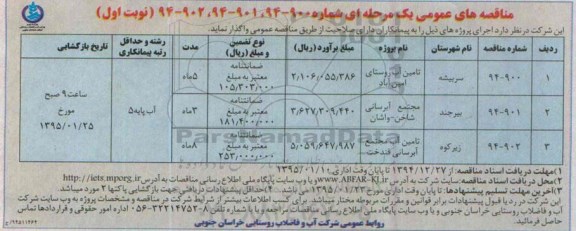 مناقصه های عمومی یک مرحله ای شماره ۹۰۰-۹۴، ۹۰۱-۹۴، ۹۰۲-۹۴ (نوبت اول)
این شرکت در نظر دارد اجرای پروژه های ذیل را به پیمانکاران دارای صلاحیت از طریق مناقصه عمومی واگذار نماید.
ردیف شماره مناقصه نام شهرستان نام پروژه مبلغ برآورد (ریال) نوع تضمین و مبلغ (ریال) مدت رشته و حداقل رتبه پیمانکاری تاریخ بازگشایی
۱ ۹۴-۹۰۰ سربیشه تامین آب روستای امین آباد ۲,۱۰۶,۰۵۵,۳۸۶ ضمانتنامه معتبر به مبلغ ۱۰۵,۳۰۳,۰۰۰ ۵ماه
۲ ۹۴-۹۰۱ بیرجند مجتمع آبرسانی شاخن-واشان ۳,۶۲۷,۳۰۹,۴۴۰ ضمانتنامه معتبر به مبلغ ۱۸۱,۴۰۰,۰۰۰ ۳ماه آب پایه۵ ساعت ۹ صبح مورخ ۱۳۹۵/۰۱/۲۵
۳ ۹۴-۹۰۲ زیرکوه تامین آب مجتمع آبرسانی فندخت ۵,۰۵۹,۶۴۷,۹۸۷ ضمانتنامه معتبر به مبلغ ۲۵۳,۰۰۰,۰۰۰ ۸ماه
ParsNamadData
۱)مهلت دریافت اسناد مناقصه: از ۱۳۹۴/۱۲/۲۷ تا پایان وقت اداری ۱۳۹۵/۰۱/۱۰
۲)محل دریافت اسناد مناقصه: سایت شرکت به آدرس www.ABFAR-KJ.ir و یا وب سایت پایگاه ملی اطلاع رسانی مناقصات به آدرس http://iets.mporg.ir
۳)آخرین مهلت تسلیم پیشنهادها: تا پایان وقت اداری مورخ ۱۳۹۵/۰۱/۲۳ می باشد. ۴)حداقل پیشنهادات دریافتی جهت بازگشایی پاکتها ۲ مورد میباشد
این شرکت در رد یا قبول پیشنهادات برابر قوانین و مقررات مربوطه مختار میباشد. برای کسب اطلاعات بیشتر از شرایط شرکت در مناقصه و مشخصات پروژه به وب سایت
شرکت آب و فاضلاب روستایی خراسان جنوبی و یا وب سایت پایگاه ملی اطلاع رسانی مناقصات مراجعه و یا با شماره تلفن ۸-۳۲۲۱۴۷۵۲-۰۵۶ اداره امور حقوقی و قراردادها تماس
حاصل فرمائید.
روابط عمومی شرکت آب و فاضلاب روستایی خراسان جنوبی